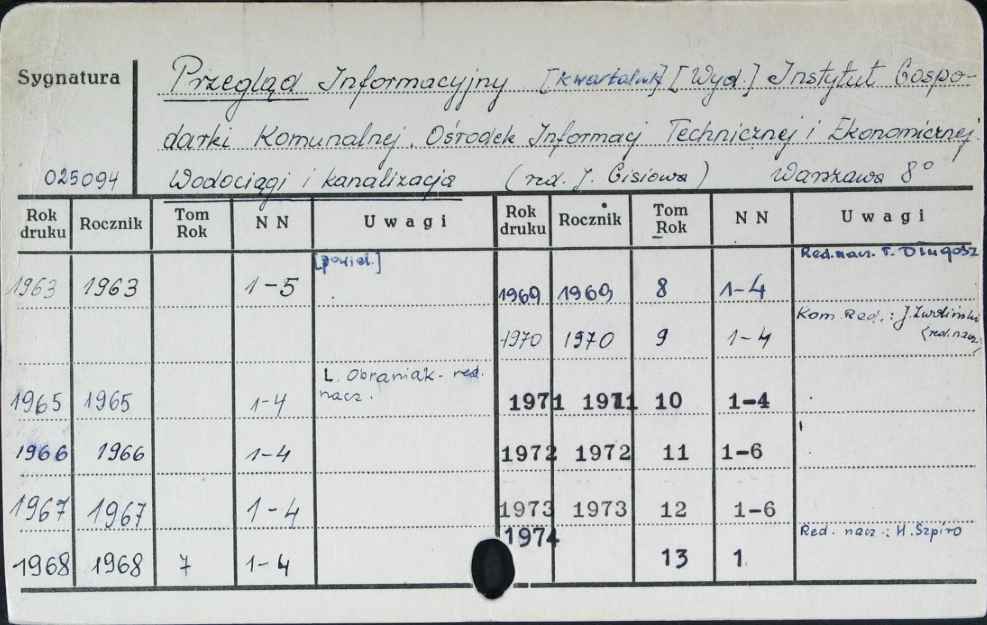 Sygnatura
Przegląd Informacyjny [kwartalnik] [Wyd.] Instytut Gospo-
darki Komunalnej. Ośrodek Informacj Technicznej i Ekonomicznej.
025094 Wodociągi i kanalizacja (red. J. Cisiowa) Warszawa 8°
Rok druku Rocznik Tom Rok NN Uwagi Rok druku Rocznik Tom Rok NN Uwagi
1963 1963 1-5 [powiel.] 1969 1969 8 1-4 Red. nacz. T. Długosz
1970 1970 9 1-4 Kom Red.: J. (red. nacz.)
1965 1965 1-4 L. Obraniak - red. nacz. 1971 1971 10 1-4
1966 1966 1-4 1972 1972 11 1-6
1967 1967 1-4 1973 1973 12 1-6
1968 1968 7 1-4 1974 13 1 Red. nacz.: H. Szpiro